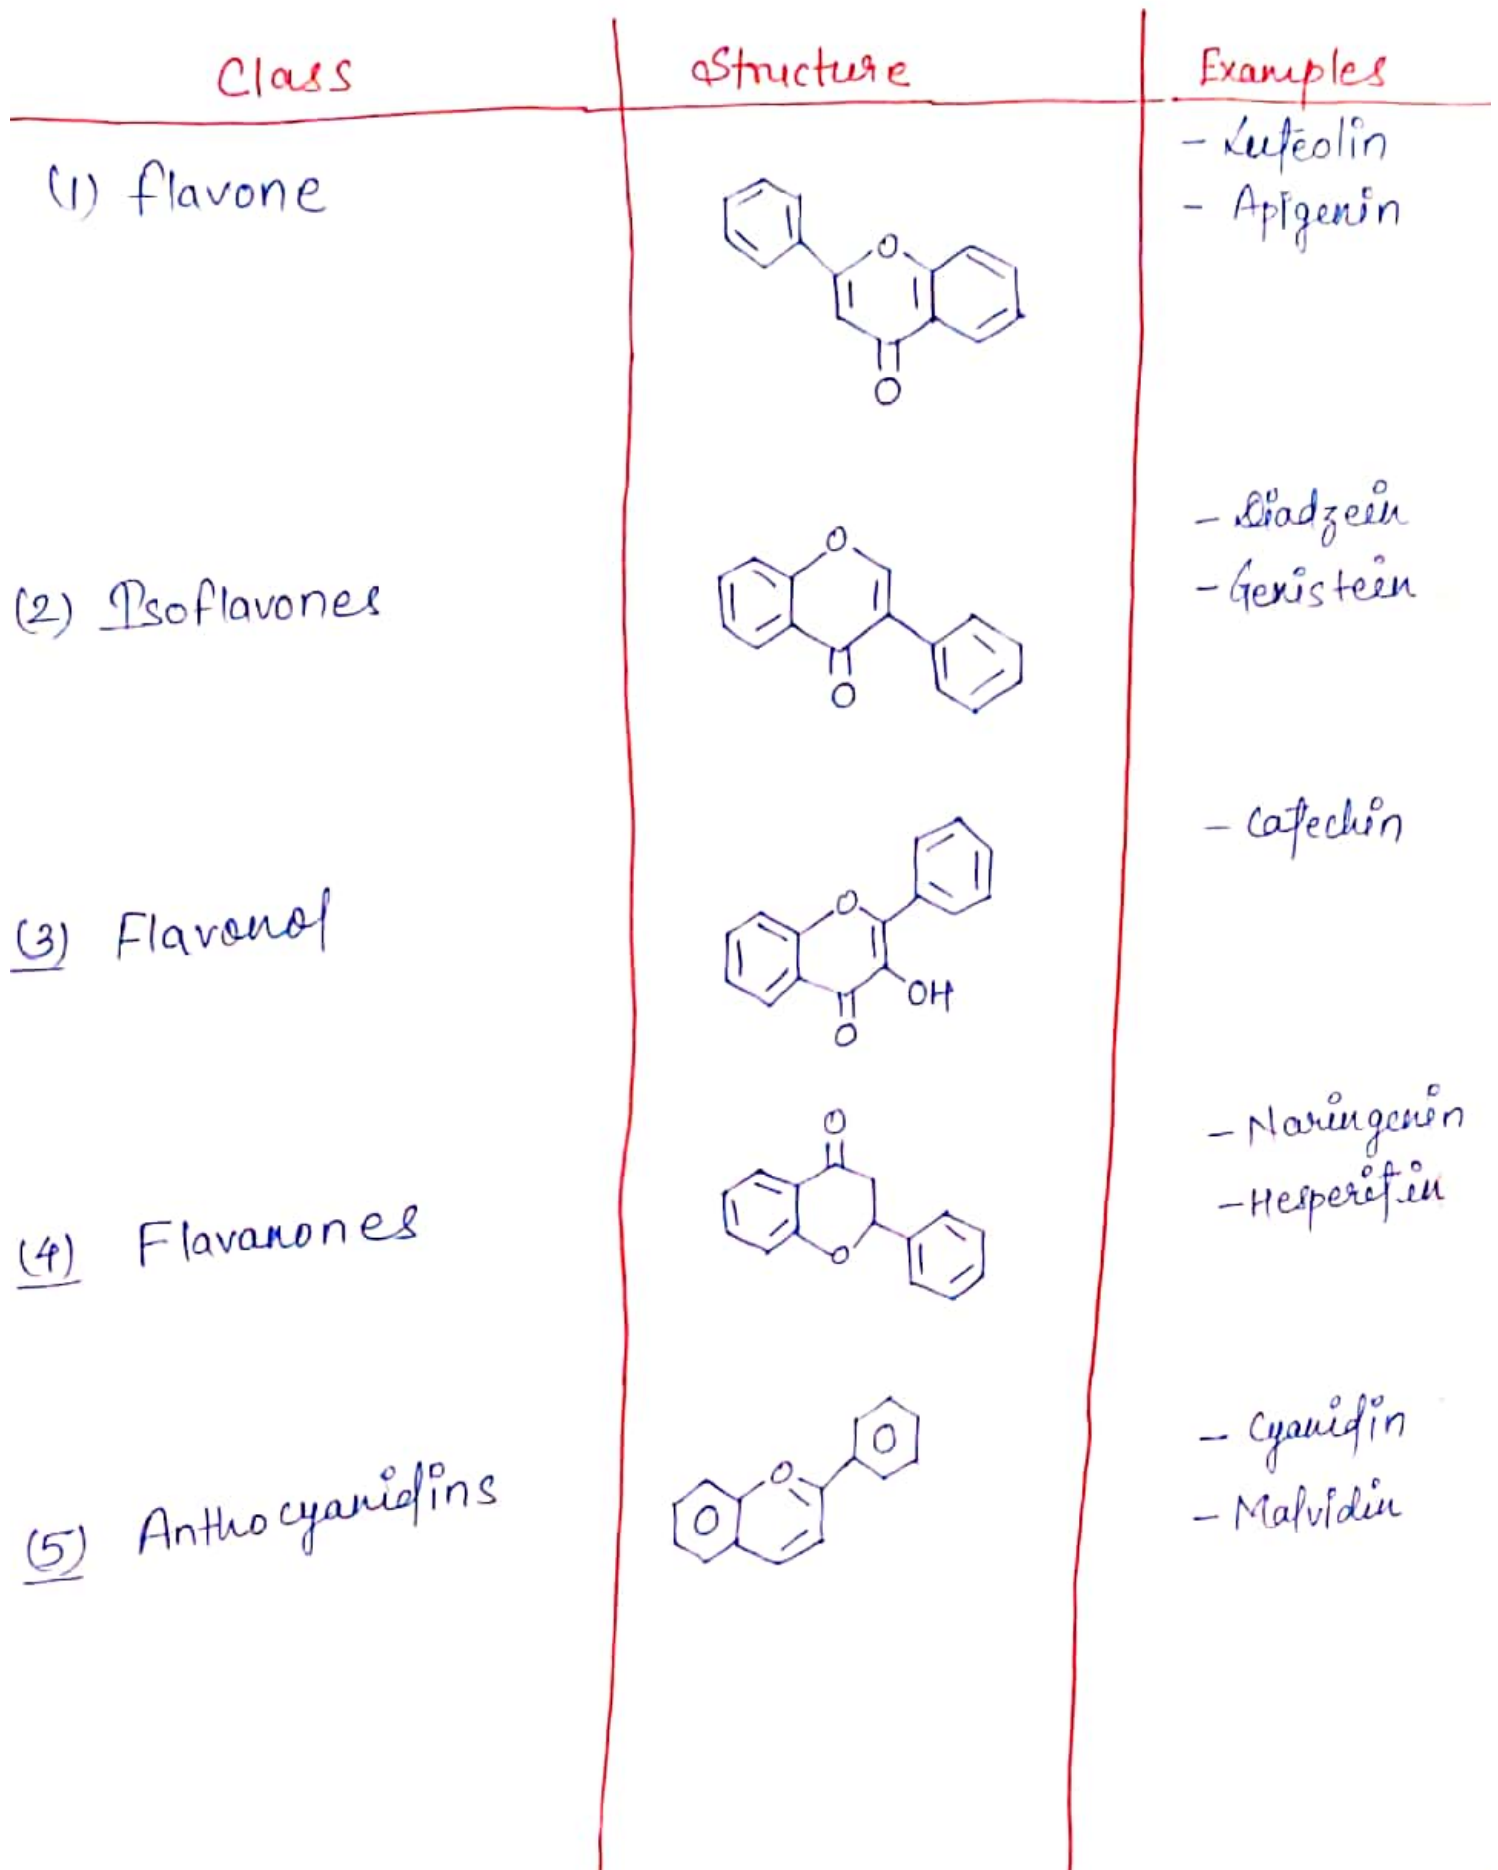 Class Structure Examples
(1) flavone
- Luteolin
- Apigenin
O
O
(2) Isoflavones
- Diadzein
- Genistein
O
O
(3) Flavonol
- Catechin
O
OH
O
(4) Flavanones
- Naringenin
- Hesperitin
O
O
(5) Anthocyanidins
- Cyanidin
- Malvidin
O